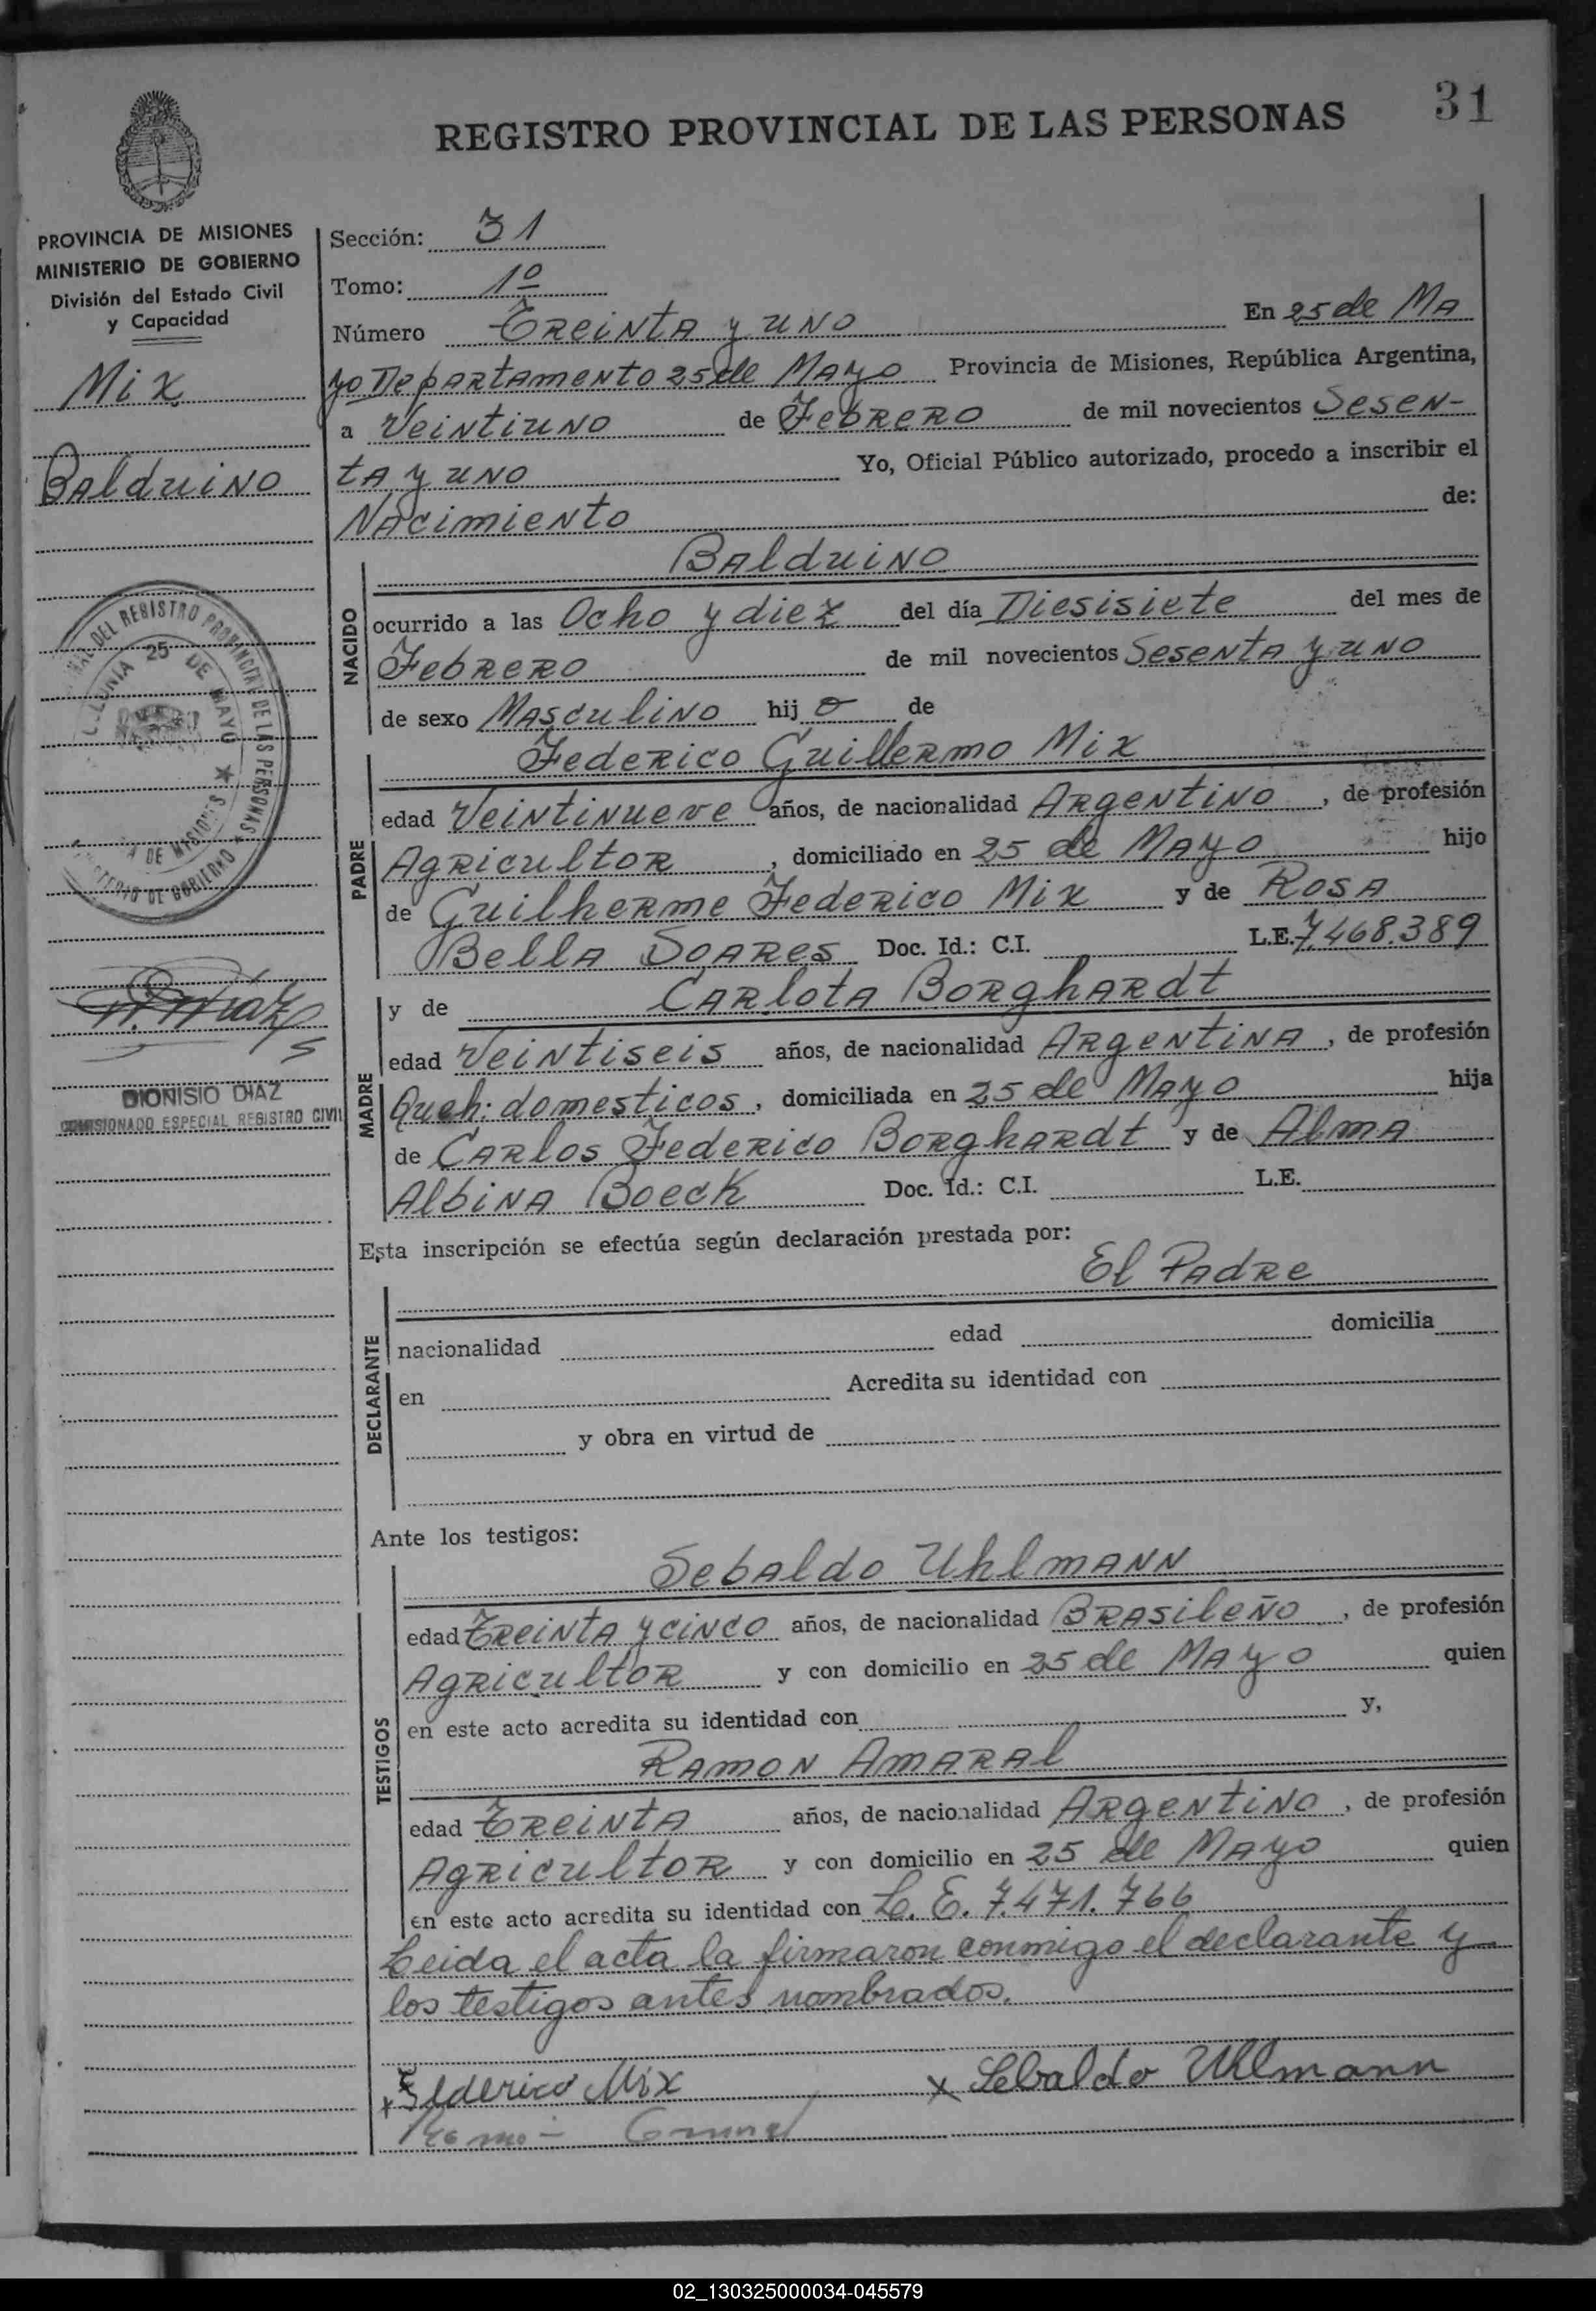 31
REGISTRO PROVINCIAL DE LAS PERSONAS
PROVINCIA DE MISIONES
MINISTERIO DE GOBIERNO
División del Estado Civil
y Capacidad
Mix
Balduino
DEL REGISTRO PROVINCIAL DE LAS PERSONAS
COLONIA 25 DE MAYO
DE MISIONES
DE GOBIERNO
DIONISIO DIAZ
COMISIONADO ESPECIAL REGISTRO CIVIL
Sección: 31
Tomo: 1º
Número Treinta y uno En 25 de Ma
yo Departamento 25 de Mayo Provincia de Misiones, República Argentina,
a Veintiuno de Febrero de mil novecientos Sesen-
ta y uno Yo, Oficial Público autorizado, procedo a inscribir el
Nacimiento de:
Balduino
NACIDO
ocurrido a las Ocho y diez del día Diesisiete del mes de
Febrero de mil novecientos Sesenta y uno
de sexo Masculino hijo de
Federico Guillermo Mix
PADRE
edad Veintinueve años, de nacionalidad Argentino, de profesión
Agricultor, domiciliado en 25 de Mayo hijo
de Guilherme Federico Mix y de Rosa
Bella Soares Doc. Id.: C.I. L.E. 7.468.389
y de Carlota Borghardt
MADRE
edad Veintiseis años, de nacionalidad Argentina, de profesión
Queh: domesticos, domiciliada en 25 de Mayo hija
de Carlos Federico Borghardt y de Alma
Albina Boeck Doc. Id.: C.I. L.E.
Esta inscripción se efectúa según declaración prestada por:
El Padre
DECLARANTE
nacionalidad edad domicilia
en Acredita su identidad con
y obra en virtud de
Ante los testigos:
Sebaldo Uhlmann
TESTIGOS
edad Treinta y cinco años, de nacionalidad Brasileño, de profesión
Agricultor y con domicilio en 25 de Mayo quien
en este acto acredita su identidad con y,
Ramon Amaral
edad Treinta años, de nacionalidad Argentino, de profesión
Agricultor y con domicilio en 25 de Mayo quien
en este acto acredita su identidad con L. E. 7.471.766
Leida el acta la firmaron conmigo el declarante y
los testigos antes nombrados.
x Federico Mix x Sebaldo Uhlmann
02_130325000034-045579